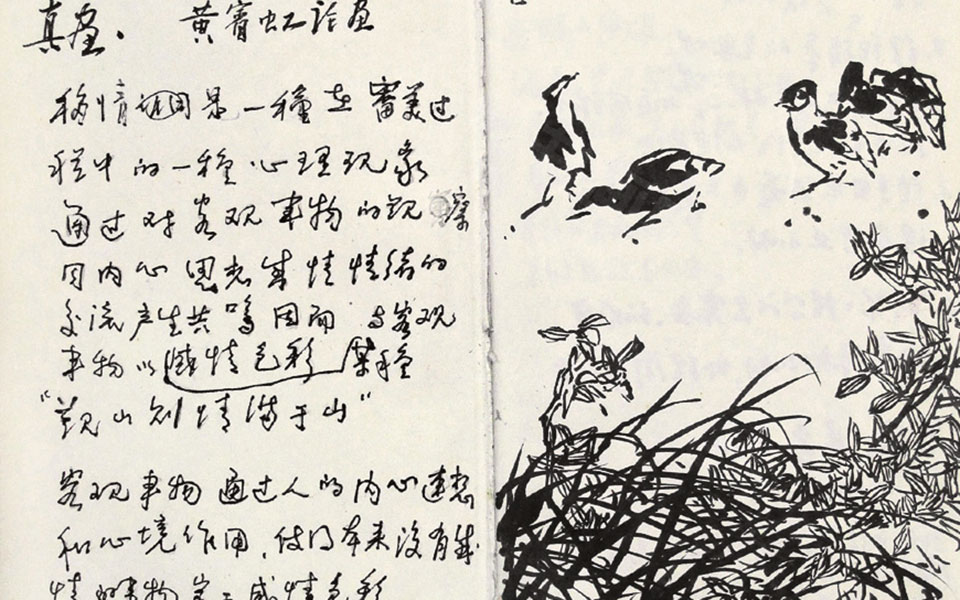 真画。 黄賓虹论画
移情作用是一種在審美过
程中的一種心理现象
通过对客观事物的观察
因内心思想感情情绪的
交流产生共鳴因而与客观
事物以感情色彩 某種
“观山则情满于山”
客观事物通过人的内心連想
和心境作用，使得本来没有感
情的事物 感情色彩